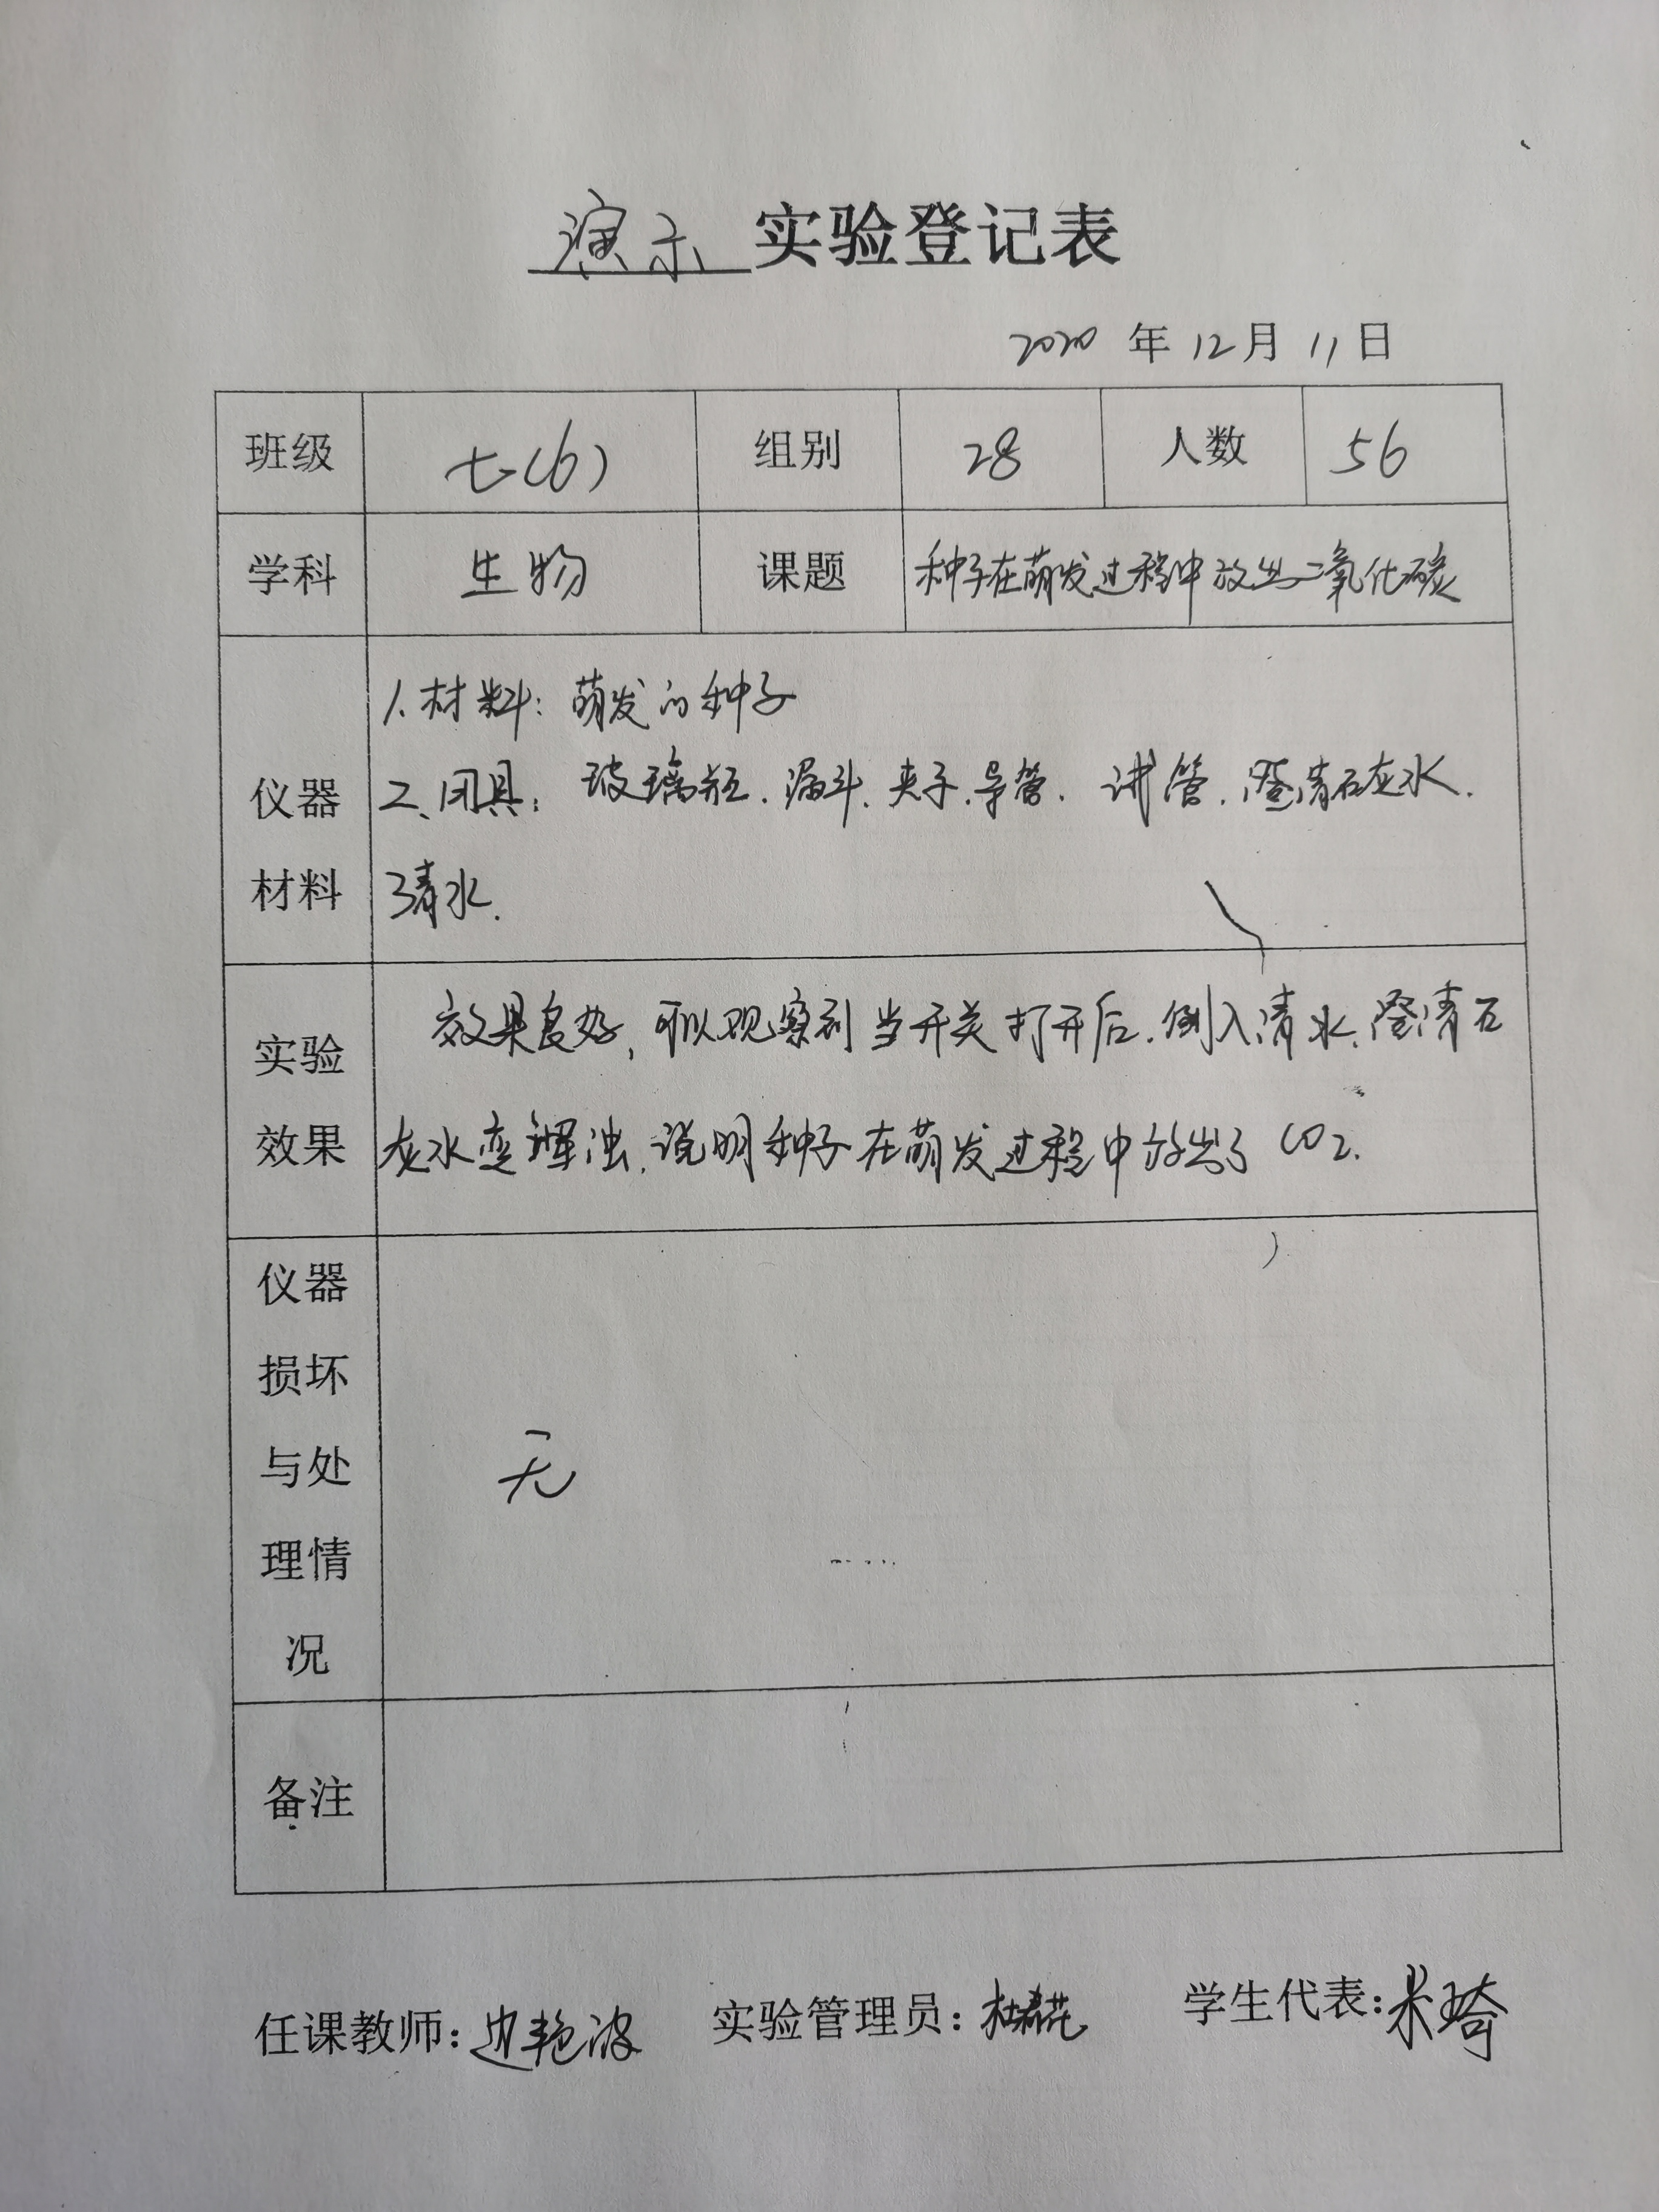 演示 实验登记表
2020 年 12 月 11 日
班级 七(6) 组别 28 人数 56
学科 生物 课题 种子在萌发过程中放出二氧化碳
仪器材料
1.材料：萌发的种子
2、用具：玻璃瓶、漏斗、夹子、导管、试管、澄清石灰水、
清水.
实验效果
效果良好，可以观察到当开关打开后，倒入清水，澄清石
灰水变浑浊，说明种子在萌发过程中放出了CO2.
仪器
损坏
与处 无
理情
况
备注
任课教师：边艳波 实验管理员：杜春花 学生代表：米琦